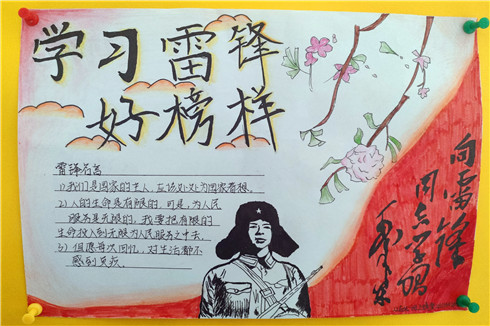 学习雷锋
好榜样
雷锋名言
1) 我们是国家的主人,应该处处为国家着想。
2) 人的生命是有限的,可是,为人民
服务是无限的,我要把有限的
生命投入到无限为人民服务之中去。
3) 但愿每次回忆,对生活都不
感到负疚。
向雷锋
同志学习
毛泽东